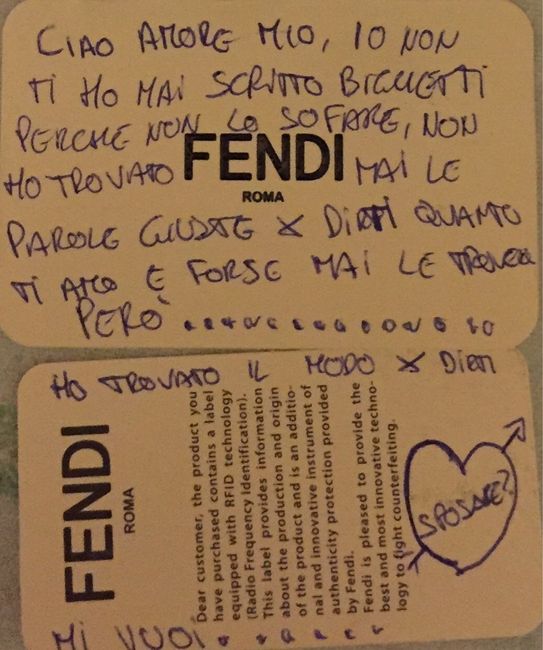 CIAO AMORE MIO, IO NON
TI HO MAI SCRITTO BIGLIETTI
PERCHE NON LO SO FARE, NON
HO TROVATO FENDI MAI LE
ROMA
PAROLE GIUSTE X DIRTI QUANTO
TI AMO E FORSE MAI LE TROVERÒ
PERÒ ..............
HO TROVATO IL MODO X DIRTI
FENDI
ROMA
Dear customer, the product you
have purchased contains a label
equipped with RFID technology
(Radio Frequency Identification).
This label provides information
about the production and origin
of the product and is an additio-
nal and innovative instrument of
authenticity protection provided
by Fendi.
Fendi is pleased to provide the
best and most innovative techno-
logy to fight counterfeiting.
MI VUOI ......
SPOSARE?